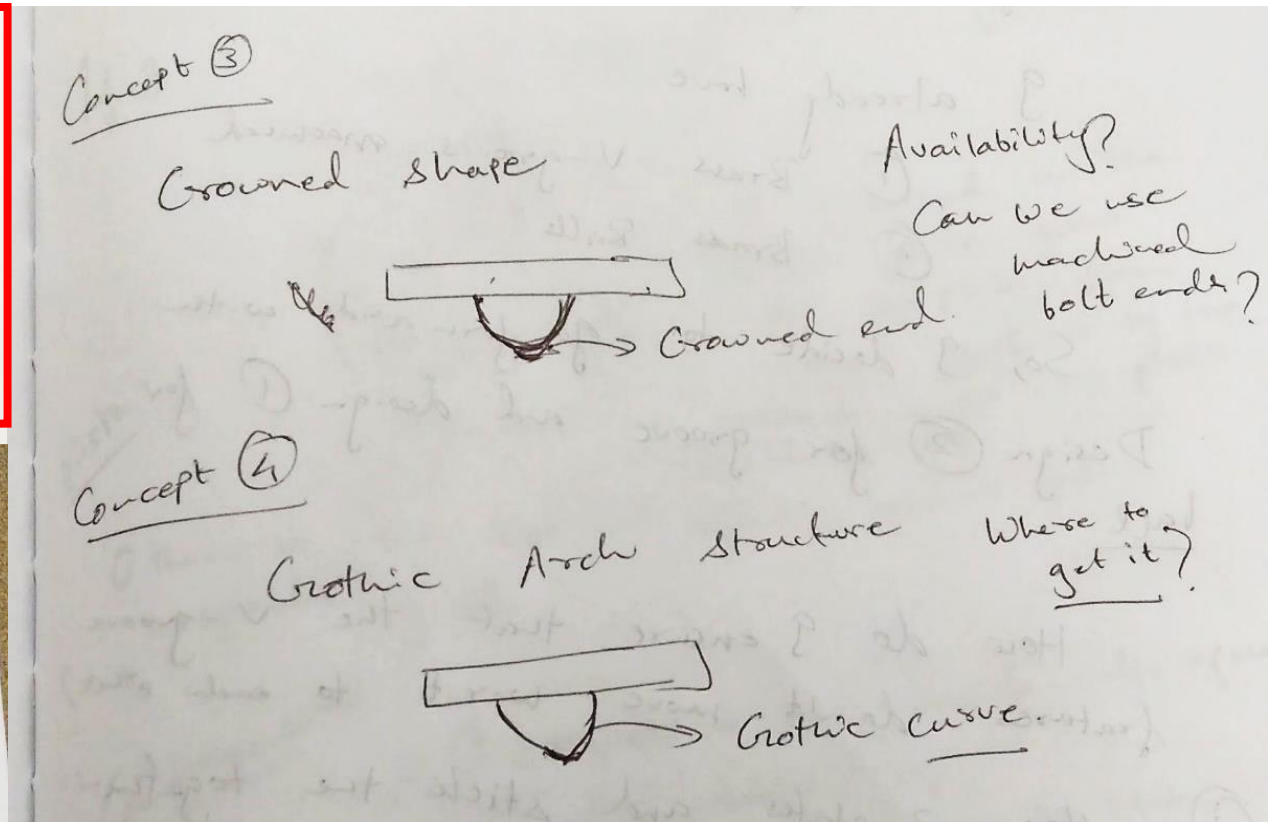 Concept ③
Crowned shape
Availability?
Can we use
machined
bolt ends?
Crowned end.
Concept ④
Gothic Arch Structure
Where to
get it?
Gothic curve.